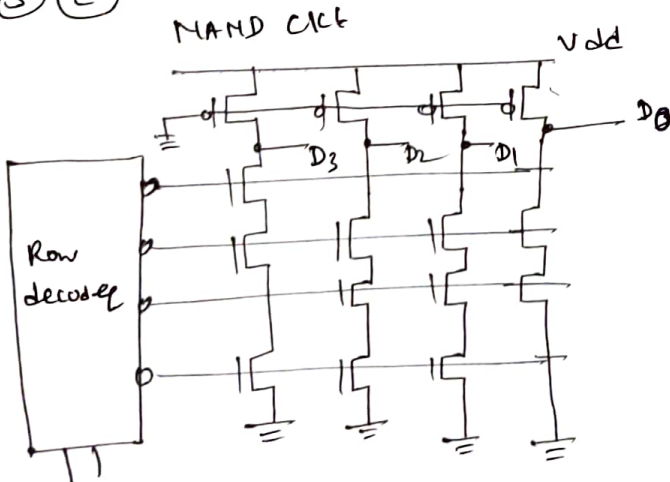 NAND CKt
Vdd
D0
D3 D2 D1
Row
decoder